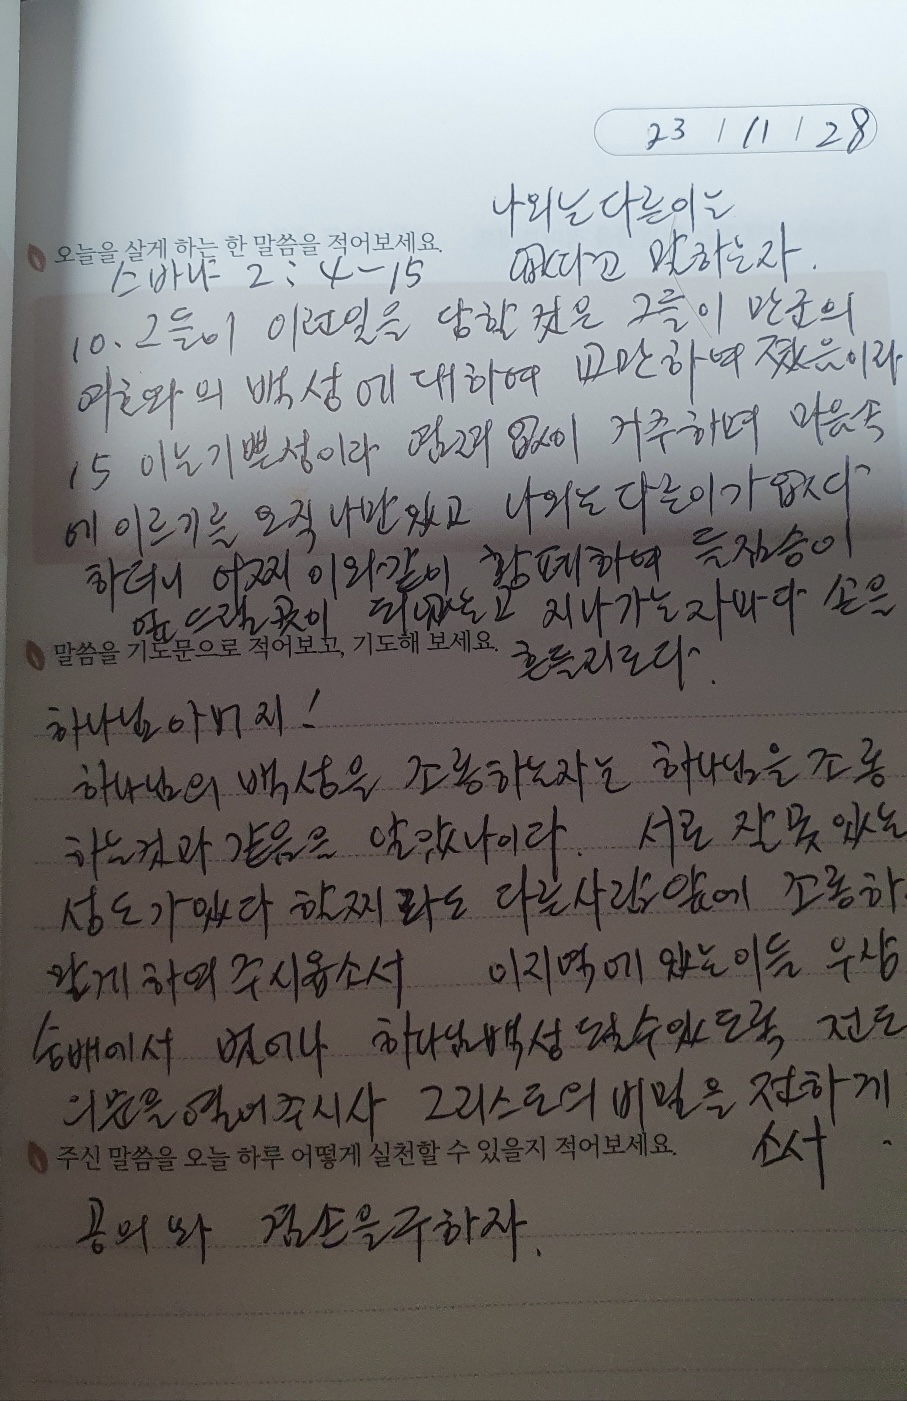 23 / 11 / 28
나외는 다른이는
없다고 말하는자.
오늘을 살게 하는 한 말씀을 적어보세요.
스바냐 2:4-15
10. 그들이 이런일을 당할 것은 그들이 만군의
여호와의 백성에 대하여 교만하여 졌음이라
15 이는 기쁜성이라 염려 없이 거주하며 마음속
에 이르기를 오직 나만 있고 나외는 다른이가 없다
하더니 어찌 이와같이 황폐하여 들짐승이
엎드릴 곳이 되었는고 지나가는자마다 손을
흔들리로다.
말씀을 기도문으로 적어보고, 기도해 보세요.
하나님아버지!
하나님의 백성을 조롱하는자는 하나님을 조롱
하는것과 같음을 알았나이다. 서로 잘못 있는
성도가 있다 할찌라도 다른사람앞에 조롱하
않게 하여 주시옵소서 이지역에 있는 이들 우상
숭배에서 벗어나 하나님백성 될수있도록 전도
의문을 열어주시사 그리스도의 비밀을 전하게
소서.
주신 말씀을 오늘 하루 어떻게 실천할 수 있을지 적어보세요.
공의와 겸손을구하자.